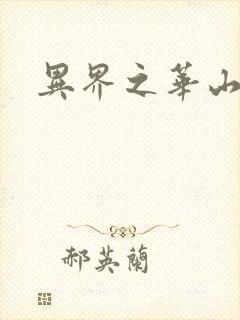 異界之華山
郝英蘭